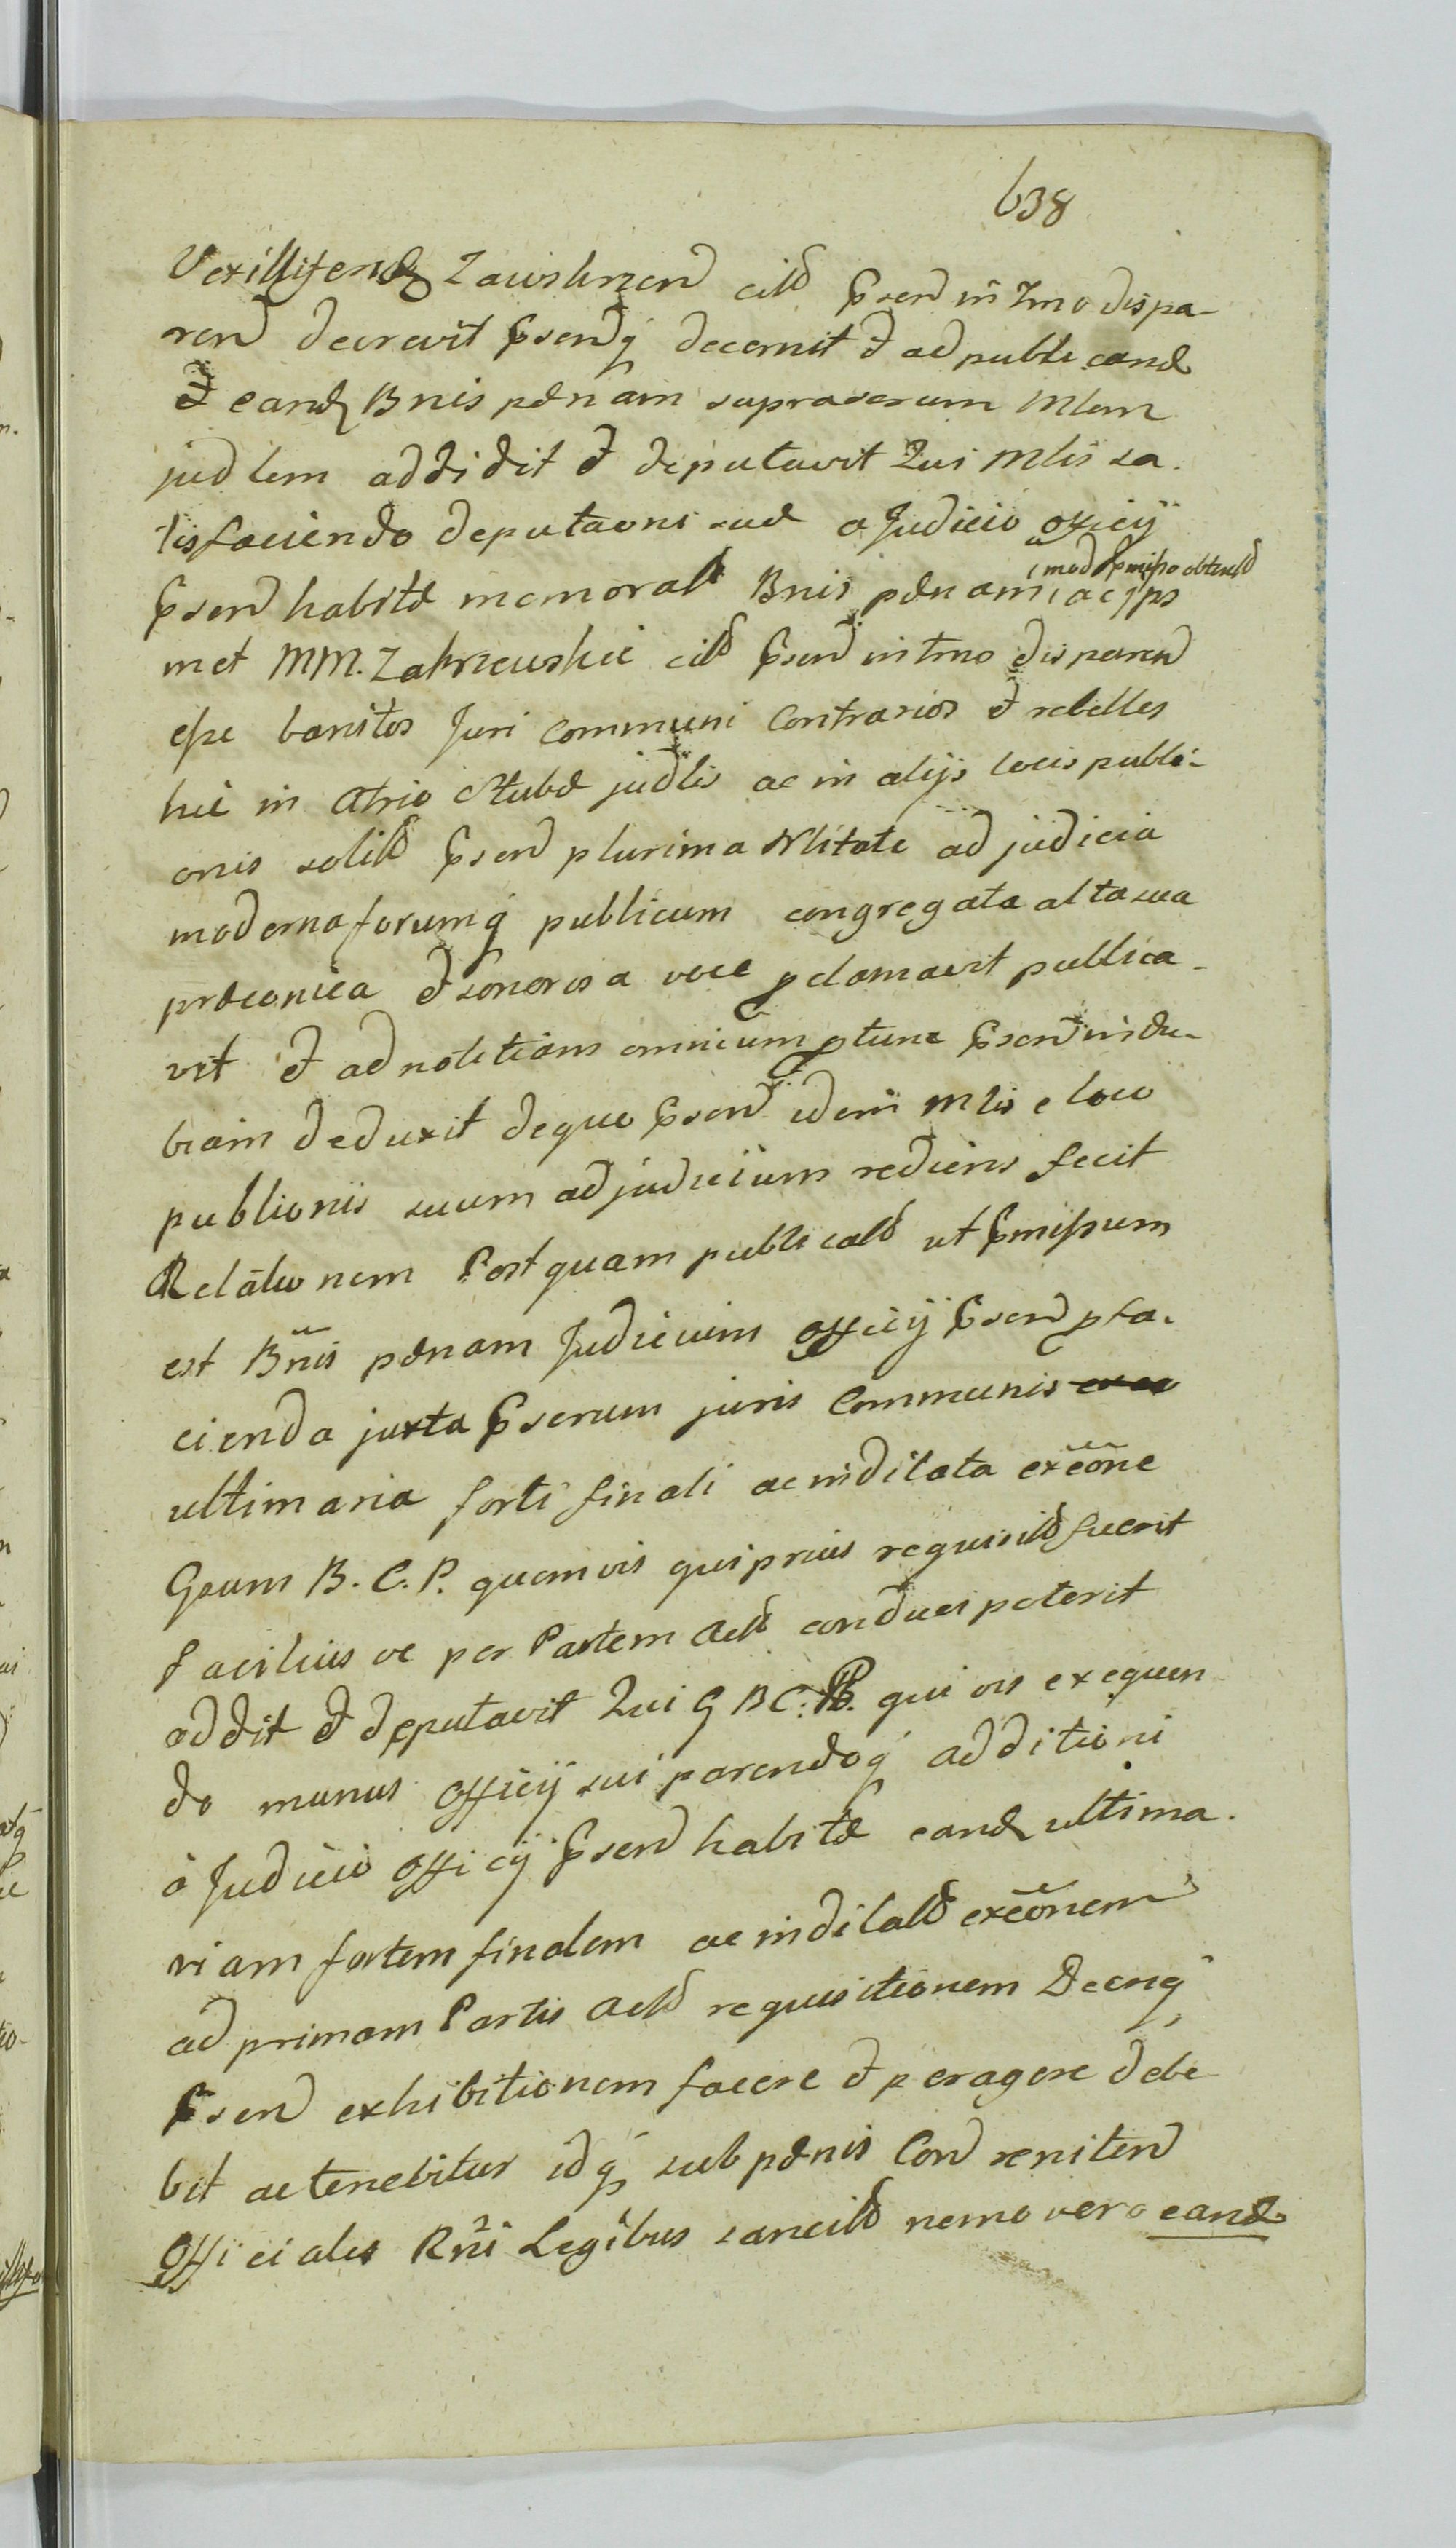 638
Vexilliferid Zawskrzen citd Psen in Tmo dispa-
ren decrevit Psenq decernit et ad publicand
et eand Bnis pænam suprascrum Mlem
judlem addidit et deputavit Qui Mlis sa-
tisfaciendo deputaoni suæ a Judicio officij
imod præmisso obtentd
Psen habitæ memorald Bnis pænam, ac jps
met MM. Zakrzewskie citd Psen in Tmo disparen
esse banitos Juri Communi Contrarios et rebelles
hic in Atrio Stubæ judlis ac in alijs locis publi-
onis solitd Psen plurima Nlitate ad judicia
moderna forumq publicum congregata alta sua
præconica et sonorosa voce pclamavit publica-
vit et ad notitiam omnium ptunc Psen indu-
biam deduxit dequo Psen idem Mlis e loco
publionis suum ad judicium rediens fecit
Relationem Postquam publicatd ut Pmissum
est Bnis pænam Judicium Officij Psen pfa-
cienda juxta Pserum juris Communis
ultimaria forti finali ac inditata exeone
Gsum B. C. P. quemvis qui prius requisitd fuerit
faciliusve per Partem Actd conduci poterit
addit et deputavit Qui G B C. P. quivis exequen
do munus Officij sui parendoq additioni
à Judicio Officij Psen habitæ eand ultima-
riam fortem finalem ac inditatd exeonem
ad primam Partis Actd requisitionem Decriq
Psen exhibitionem facere et peragere debe
bit ac tenebitur idq sub pænis Con reniten
Officiales Rni Legibus sancitd nemo vero eand